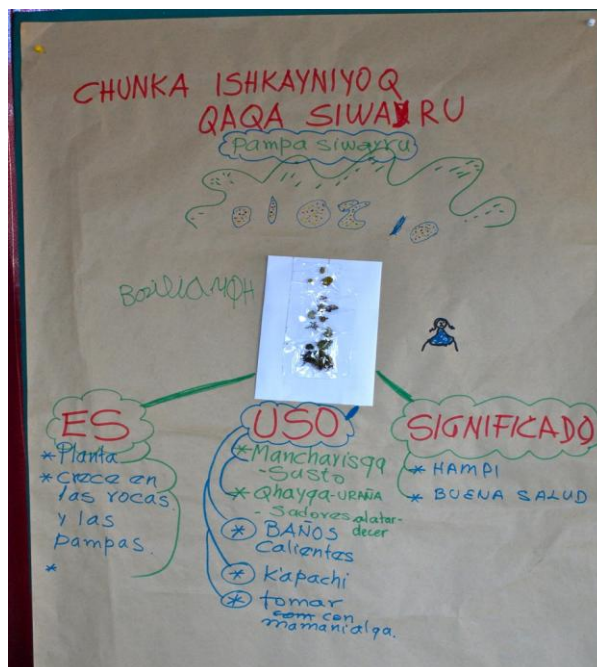 CHUNKA ISHKAYNIYOQ
QAQA SIWARRU
Pampa siwarru
ES
* Planta
* Crece en
las rocas
y las
pampas.
*
USO
* Mancharisqa
- Susto
* Qhayqa - URAÑA
- Sadores alatar-
decer
* BAÑOS
Calientes
* K'apachi
* tomar
con
mamanialga.
SIGNIFICADO
* HAMPI
* BUENA SALUD